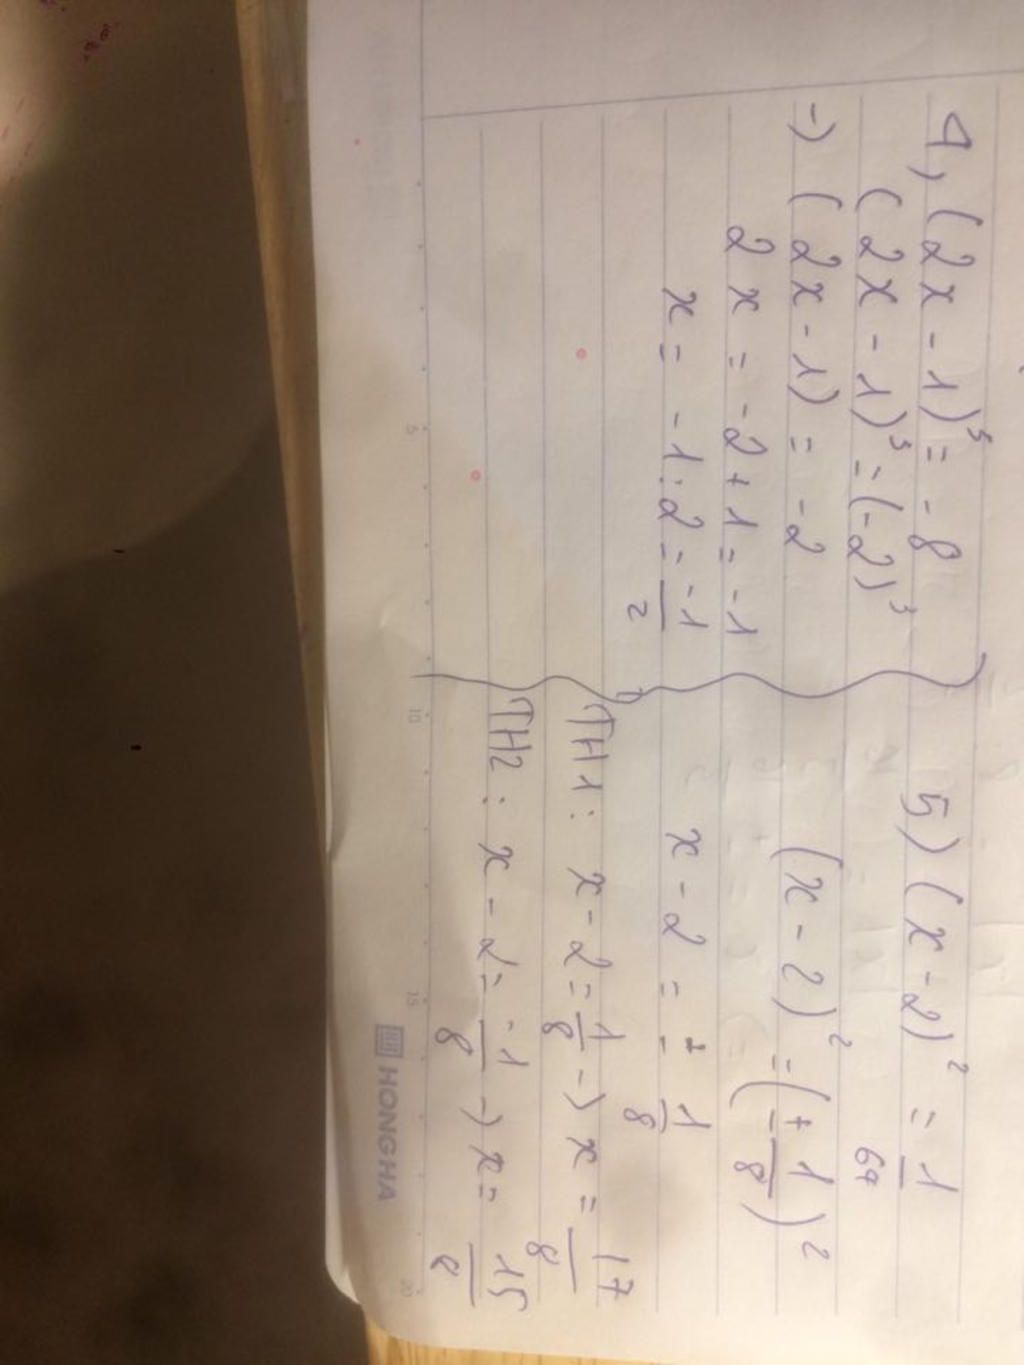 4, (2x - 1)³ = - 8
(2x - 1)³ = (-2)³
-) (2x - 1) = - 2
2x = -2 + 1 = -1
x = -1 : 2 = -1/2
5) (x - 2)² = 1/64
(x - 2)² = (± 1/8)²
x - 2 = ± 1/8
TH1: x - 2 = 1/8 -) x = 17/8
TH2: x - 2 = -1/8 -) x = 15/8
5 10 15 20
HONGHA